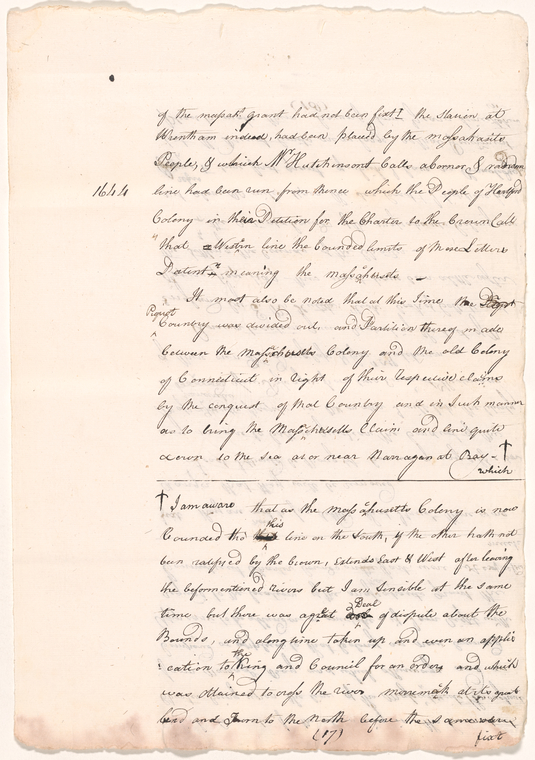 of the massah grant had not been fixt I the Station at
Wrentham indeed, had been placed by the massahusets
People, & which Mr Hutchinson Calls a Cornor &
1644 line had been run from thence which the People of Hartford
Colony in their Petition for the Charter to the Crown Call
"that Western line the bounded limits of these Letters
Patent" meaning the massachusets
It most also be noted that at this time the
Pequot Country was divided out, and Partition thereof made
between the Massachusetts Colony and the old Colony
of Connecticut in right of their respective claims
by the conquest of that Country and in Such manner
as to bring the Massachusetts Claim and line quite
down to the Sea at or near Narragansat Bay - †
which
† I am aware that as the massahusetts Colony is now
bounded tho this line on the South, if the other hath not
been ratifyed by the Crown, Extends East & West after leaving
the beformentioned rivers but I am Sensible at the same
time, but there was a great Deal of dispute about the
Bounds, and a long time taken up, and even an appli
cation to the King and Council for an order and which
was obtained to cross the river merremack at its great
bend and Turn to the North before the same were
(17) fixt